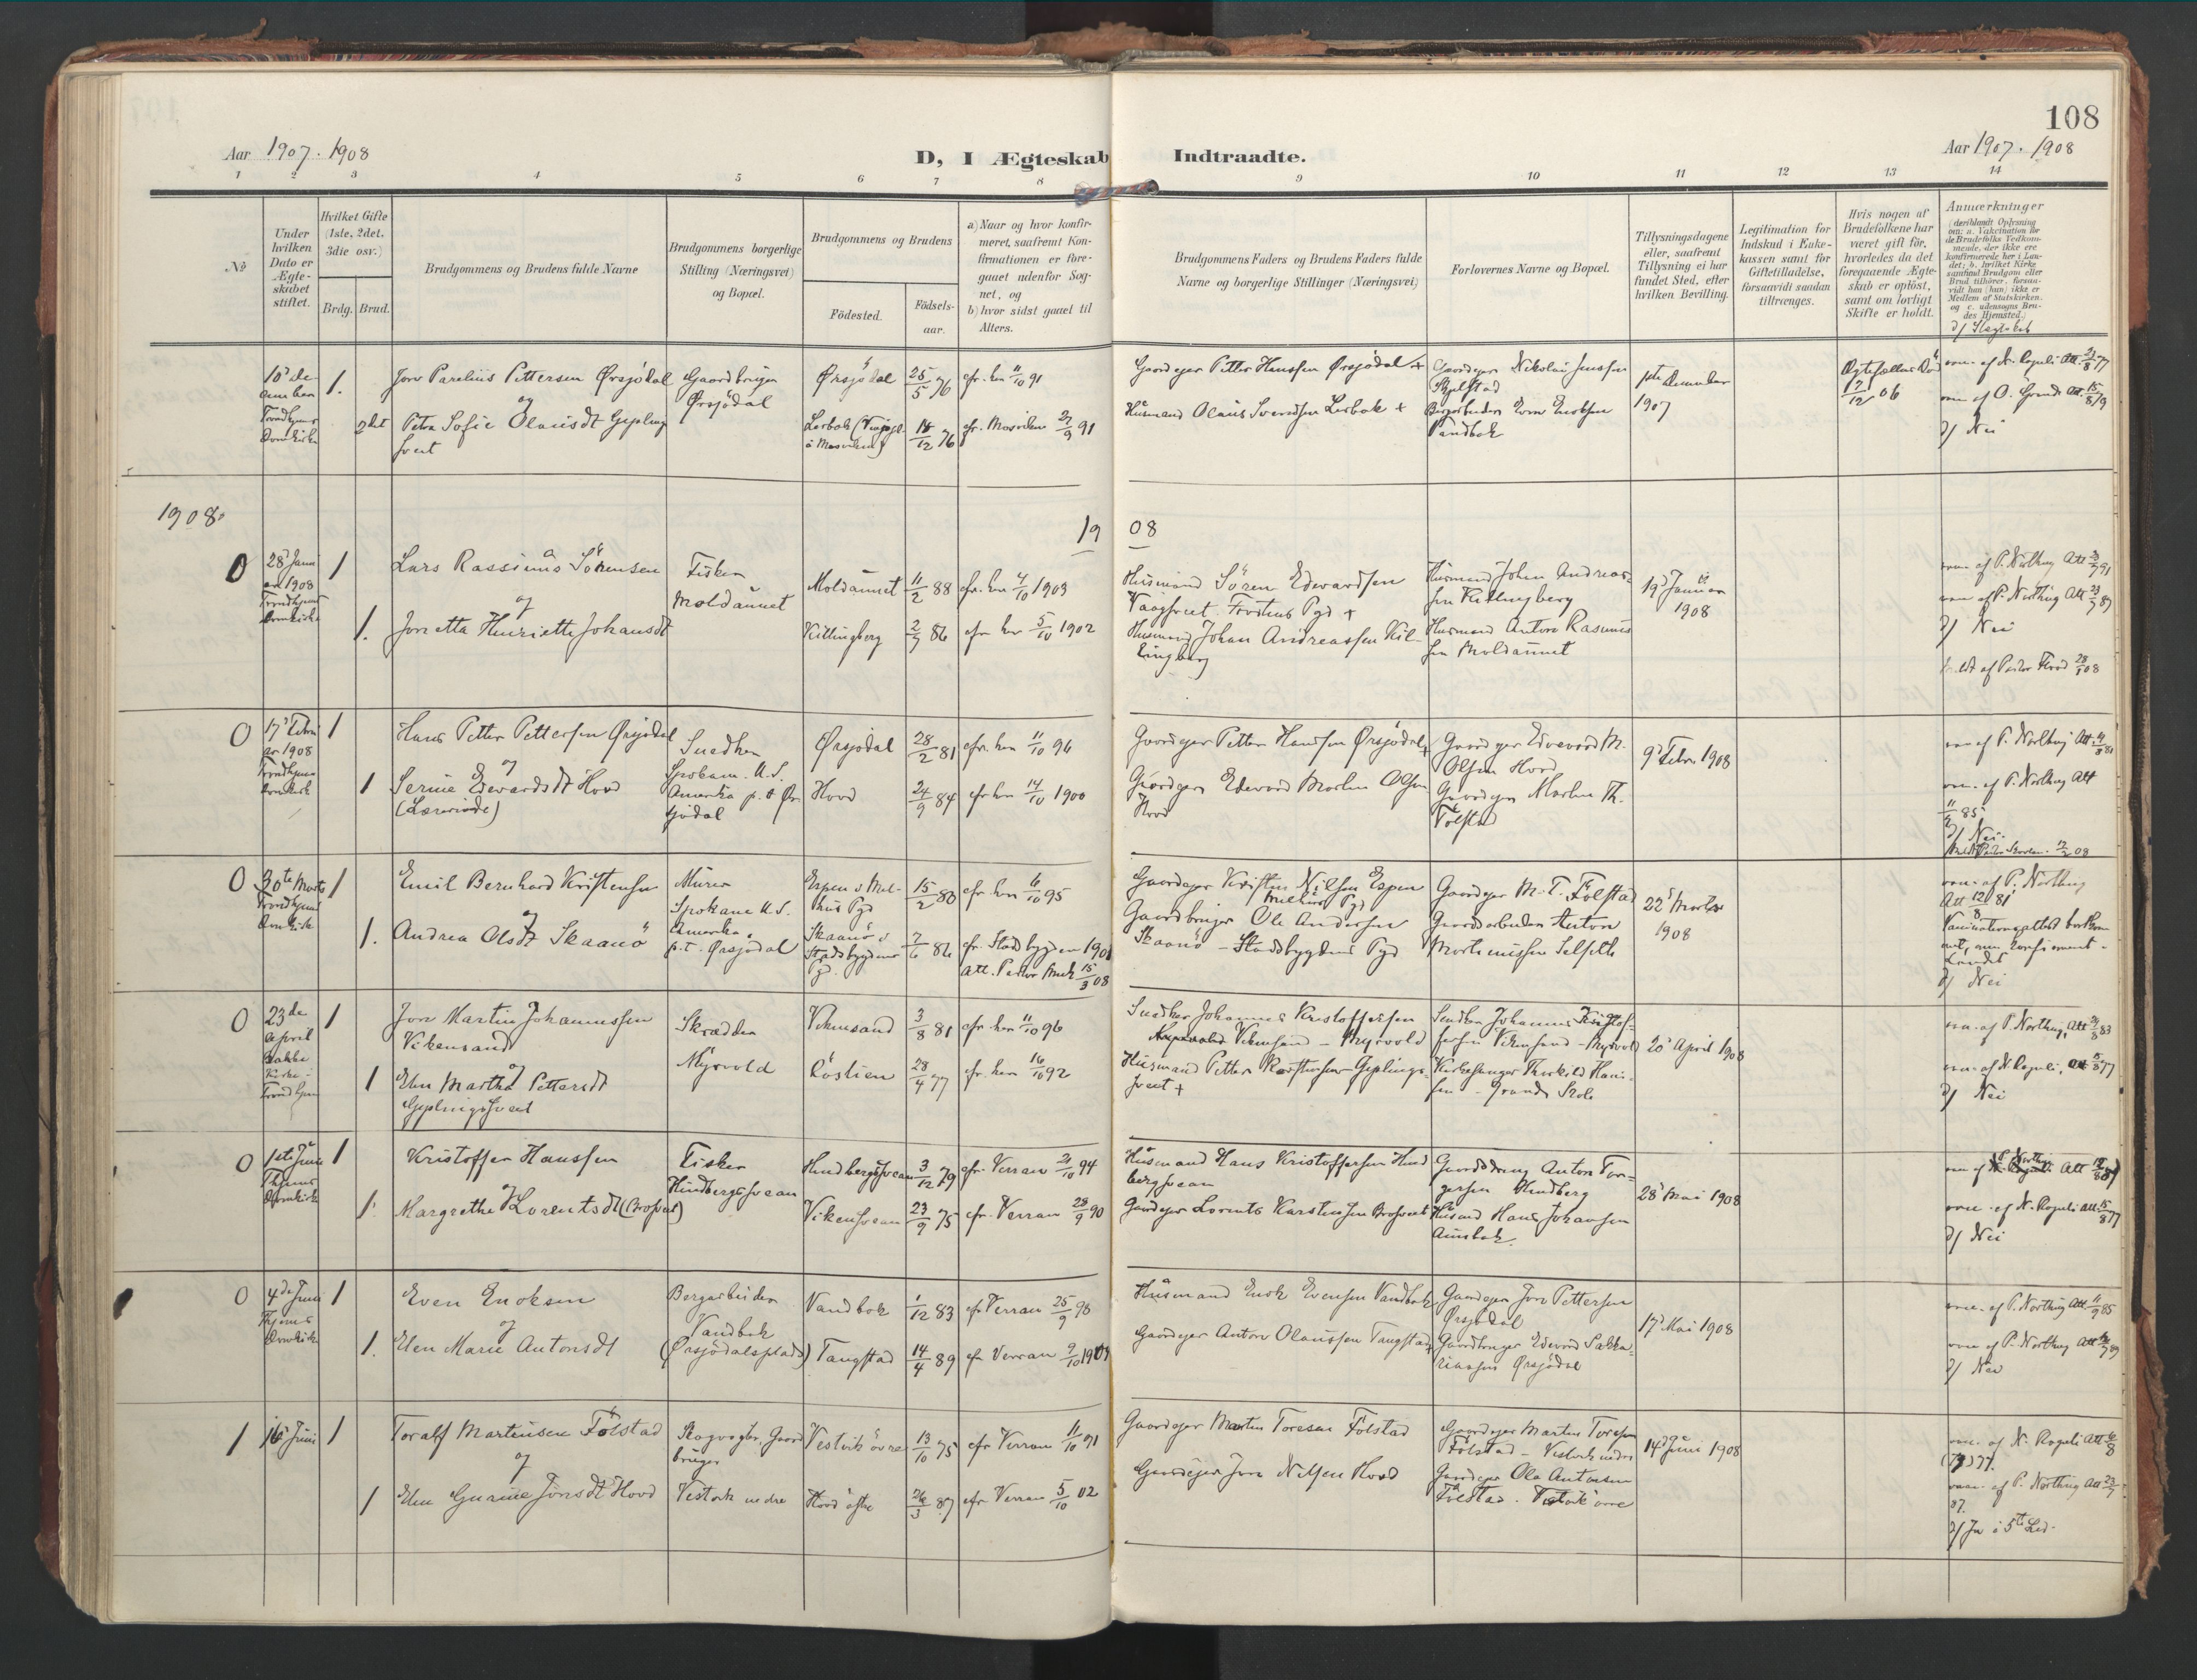 108
Aar 1907. 1908
D, I Ægteskab Indtraadte.
Aar 1907. 1908
1 2 3 4 5 6 7 8 9 10 11 12 13 14
No
Under hvilken Dato er Ægteskabet stiftet.
Hvilket Gifte (1ste, 2det, 3die osv.)
Brdg. Brud.
Brudgommens og Brudens fulde Navne
Brudgommens borgerlige Stilling (Næringsvei) og Bopæl.
Brudgommens og Brudens
Födested.
Födselsaar.
a) Naar og hvor konfirmeret, saafremt Konfirmationen er foregaaet udenfor Sognet, og
b) hvor sidst gaaet til Alters.
Brudgommens Faders og Brudens Faders fulde Navne og borgerlige Stillinger (Næringsvei)
Forlovernes Navne og Bopæl.
Tillysningsdagene eller, saafremt Tillysning ei har fundet Sted, efter hvilken Bevilling.
Legitimation for Indskud i Enkekassen samt for Giftetilladelse, forsaavidt saadan tiltrænges.
Hvis nogen af Brudefolkene har været gift för, hvorledes da det foregaaende Ægteskab er oplöst, samt om lovligt Skifte er holdt.
Anmærkninger
(deriblandt Oplysning om: a. Vakcination for de Brudefolks Vedkommende, der ikke ere konfirmerede her i Landet; b. hvilket Kirkesamfund Brudgom eller Brud tilhörer, forsaavidt han (hun) ikke er Medlem af Statskirken, og c. udensogns Brudes Hjemsted.)
d/ Slegtskab
10' December Trondhjems Domkirke
1.
Jørv Parelius Pettersen Ørsjödal
og
2det
Petra Sofie Olausdt Gipling
sveet
Gaardbruger
Ørsjödal
Ørsjödal 25/5 76 cfr. her 11/10 91
Lerbok 18/12 76 cfr. Mosviken 27/9 91
Gaardeger Petter Hansen Ørsjödal +
Husmand Olaus Svendsen Lerbok +
Gaardeger Nikolai Jensen
Bergarbeider Even Enoksen
Vandbok
1ste December
1907
7/12 06
d/ Nei
1908.
19 08
0
28' Januar 1908 Trondhjems Domkirke
1
Lars Rassimus Sörensen
og
1.
Jonetta Henriette Johansdt
Fisker
Moldaunet
Moldaunet 11/2 88 cfr. her 4/10 1903
Killingberg 2/7 86 cfr her 5/10 1902
Husmand Sören Edwardsen
+
Husmand Johan Andreassen Kil-
lingberg
Husmand Johan Andreas-
sen Killingberg
Husmand Anton Rasmus
sen Moldaunet
19' Januar
1908
vacc. af P. Northug Att
vacc af P. Northug Att 23/7 87
d/ Nei
0
17' Februar 1908 Trondhjems Domkirke
1
Hans Petter Pettersen Ørsjödal
og
1
Serine Edwardsdt Hovd
(Lærerinde)
Snedker
Spokane. U.S.
Amerika p.t. Ør-
sjödal
Ørsjödal 28/2 81 cfr. her 11/10 96
Hovd 24/9 84 cfr her 14/10 1900
Gaardeger Petter Hansen Ørsjödal +
Gaardeger Edevard Morten Olsen
Hovd
Gaardeger Edevard M.
Olsen Hovd
Gaardeger Morten Th.
Folstad
9' Febr 1908
vacc af P. Northug Att
vac. af P. Northug Att
11/9 85
d/ Nei
0
30te Marts Trondhjems Domkirke
1
Emil Bernhard Kristensen
og
1.
Andrea Olsdt Skaanö
Murer
Spokane U.S.
Amerika
p.t. Ørsjödal
Espen i Melhus Pgd 15/2 80 cfr her 6/10 95
Skaanö i Stadsbygdens Pgd 7/6 86 cfr. Stadsbygden 1901
Att. 15/3 08
Gaardeger Kristen Nilsen Espen
Melhus Pgd
Gaardbruger Ole Andersen
Skaanö – Stadsbygdens Pgd
Gaardeger M. T. Folstad
Gaardarbeider Anton
Mortinussen Selseth
22' Marts
1908
vacc. af P. Northug
Att 12/8 81
d/ Nei
0
23de April Bakke Kirke i Trondhjem
1
Jørv Martin Johannessen
Vikensand
og
1
Elen Martha Pettersdt
Giplingsveet
Skrædder
Myrvold
Vikensand 3/8 81 cfr. her 11/10 96
Röstien 28/4 77 cfr. her 16/10 92
Snedker Johannes Kristoffersen
Vikensand – Myrvold
Husmand Petter Karstensen Giplings-
sveet +
Snedker Johannes Kristof-
fersen Vikensand – Myrvold
Kirkesanger Thorkild Han-
sen – Grande Skole
20' April 1908
vac. af P. Northug, Att
vac. af N. Roguli, Att 15/8 77
d/ Nei
0
1ste Juni Thjems Domkirke
1
Kristoffer Hanssen
og
1.
Margrethe Lorentsdt
Fisker
Hindbergsvean
Hindbergsvean 3/12 79 cfr. Verran 21/10 94
Vikensvean 23/9 75 cfr. Verran 28/9 90
Husmand Hans Kristoffersen Hind
bergsvean
Gaardeger Lorents Karstensen
Gaarddreng Anton Tor-
gersen Hindberg
Husmd Hans Johansen
Aunbak.
28' Mai 1908
vacc af P. Northug Att
vacc. af N. Roguli Att. 15/8 77
d/ Nei
0
4de Juni Thjems Domkirke
1
Even Enoksen
og
1.
Elen Marie Antonsdt
Bergarbeider
Vandbok
(Ørsjödalsplads)
Vandbok 1/12 83 cfr Verran 25/9 98
Tangstad 14/4 89 cfr Verran 9/10 1904
Husmand Enok Evensen Vandbok
Gaardeger Anton Olaussen Tangstad +
Gaardeger Jørv Pettersen
Ørsjödal
Gaardbruger Edevard Sakka-
riassen Ørsjödal
17' Mai 1908
vacc. af P. Northug Att. 11/9 85
vacc af P. Northug Att
d/ Nei
1
16' Juni
1
Toralf Martinsen Fölstad
og
1
Elen Gurine Jörnsdt Hovd
Skogvogter, Gaard
bruger
Vestvik nedre
Vestvik övre 13/10 75 cfr Verran 11/10 91
Hovd östre 26/3 87 cfr Verran 5/10 02
Gaardeger Martin Toresen Folstad
Gaardeger Jørn Nilsen Hovd
Gaardeger Martin Toresen
Fölstad – Vestvik nedre
Gaardeger Ole Antonsen
Fölstad. Vestvik övre
14' Juni 1908
vac. af N. Roguli Att
vacc. af P. Northug Att 23/7
87.
d/ Ja i 5te Led.